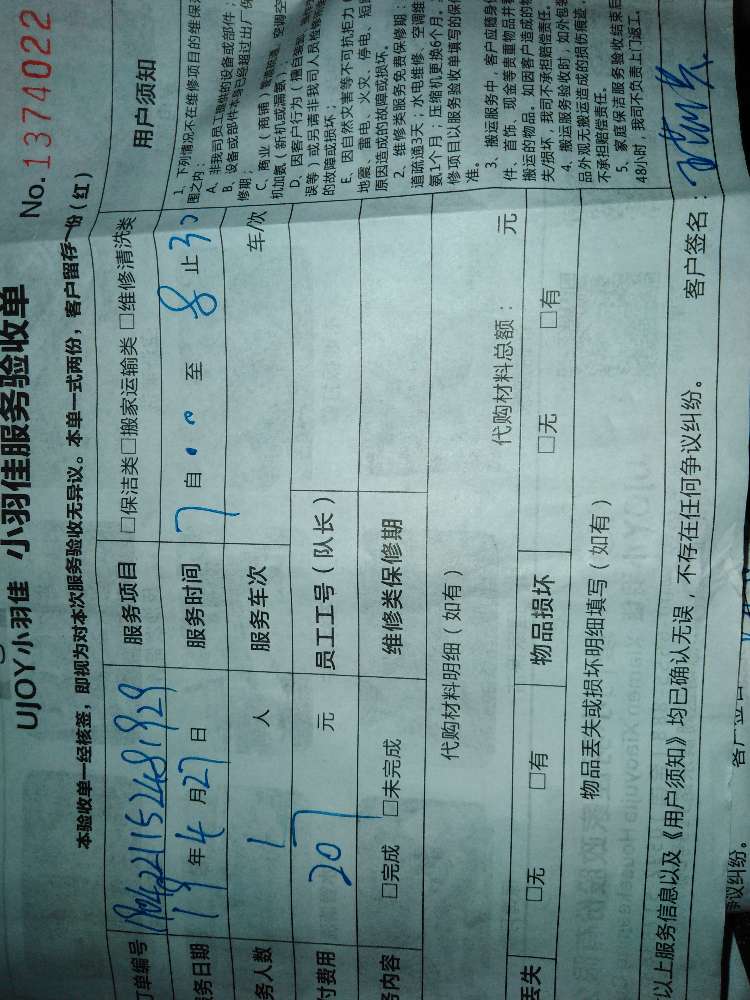 UJOY小羽佳 小羽佳服务验收单
No.1374022
本验收单一经核签，即视为对本次服务验收无异议。本单一式两份，客户留存一份（红）
订单编号
服务项目 □保洁类□搬家运输类 □维修清洗类
用户须知
年4月27日
服务时间 7自00至8止30
1、下列情况不在维修项目的维保
围之内：
A、非我司员工提供的设备或部件；
B、设备或部件本身已经超过出厂保
修期；
务人数 1人
服务车次 车/次
机加氨（新机或漏氨）；
误等）或另请非我司人员检修
的故障或损坏；
付费用 207元
员工工号（队长）
E、因自然灾害等不可抗拒力（
地震、雷电、火灾、停电、短路
原因造成的故障或损坏。
务内容 □完成 □未完成
维修类保修期
2、维修类服务免费保修期：
道疏通3天；水电维修、空调维
氨1个月；压缩机更换6个月。
修项目以服务验收单填写的保修
准。
代购材料明细（如有）
代购材料总额： 元
3、搬运服务中，客户应随身
件、首饰、现金等贵重物品并
搬运的物品。如因客户造成的物
失/损坏，我司不承担赔偿责任。
丢失 □无 □有
物品损坏 □无 □有
4、搬运服务验收时，如外包装
品外观无搬运造成的损伤痕迹，
不承担赔偿责任。
物品丢失或损坏明细填写（如有）
5、家庭保洁服务验收结束后
48小时，我司不负责上门返工。
以上服务信息以及《用户须知》均已确认无误，不存在任何争议纠纷。
客户签名：
争议纠纷。